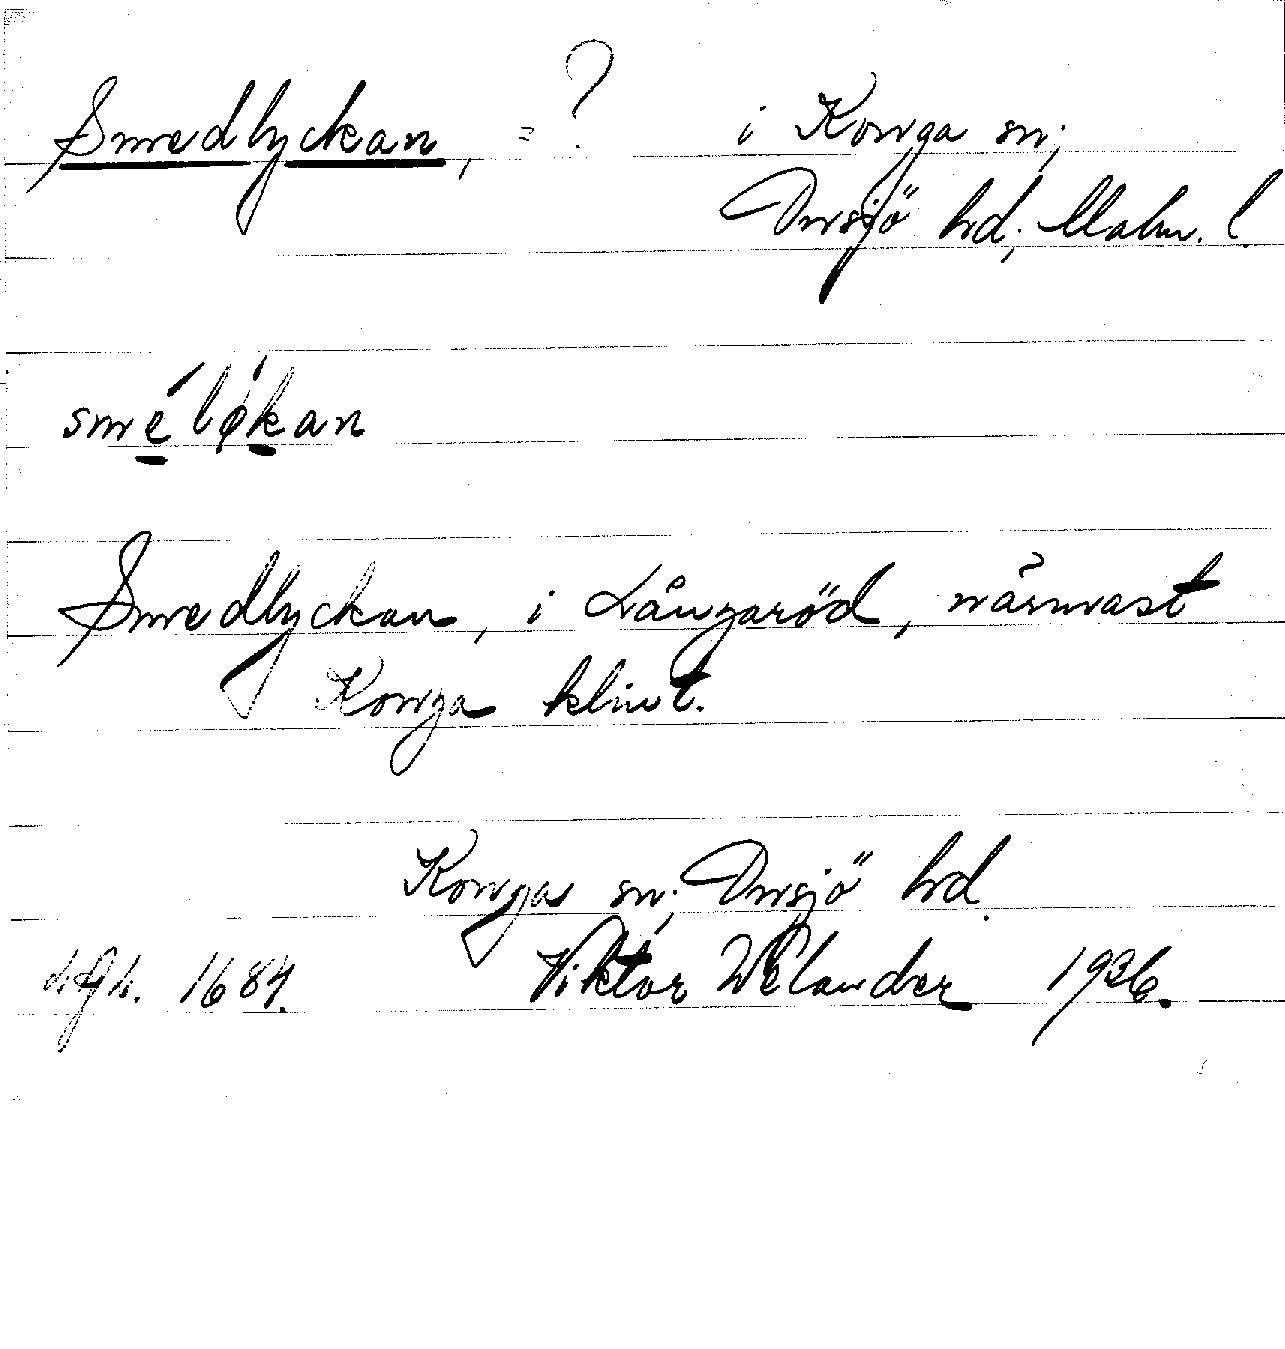 Smedlyckan, = ? i Konga sn;
Onsjö hd; Malm. l.
smélǿkan
Smedlyckan, i Långaröd, närmast
Konga klint.
Konga sn; Onsjö hd.
1684. Viktor Welander 1936.